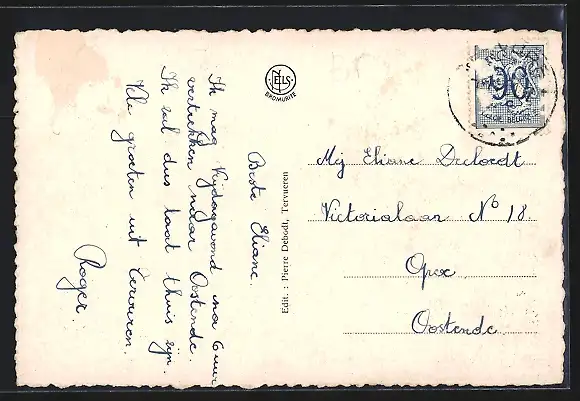 Beste Eliane.
Ik mag Vrijdagavond na 6 uur
vertrekken naar Oostende.
Ik zal dus laat thuis zijn.
Vele groeten uit Tervuren.
Roger.
NELS
BROMURITE
Edit. : Pierre Debodt, Tervueren
90
c
BELGIE
Mej Eliane Decloedt
Victorialaan N° 18.
Opex
Oostende